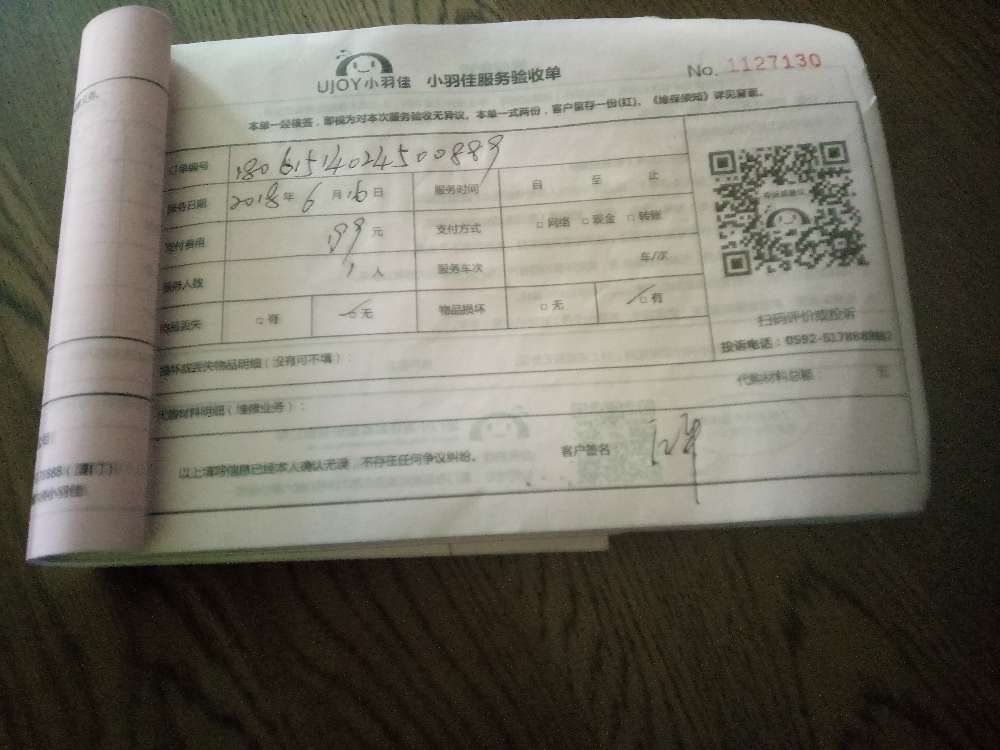 UJOY小羽佳 小羽佳服务验收单 No. 1127130
本单一经签签，即视为对本次服务验收无异议。本单一式两份，客户留存一份(红)。《维保须知》详见背面。
订单编号 18061514024500889
服务日期 2018年6月16日 服务时间 自 至 止
支付费用 199元 支付方式 □网络 □现金 □转账
服务人数 1人 服务车次 车/次
物品丢失 □有 □无 物品损坏 □无 □有
扫码评价或投诉
损坏或丢失物品明细（没有可不填）： 投诉电话：0592-5178688
代购材料明细（维修业务）： 代购材料总额 元
以上填写信息已经本人确认无误，不存在任何争议纠纷。 客户签名：